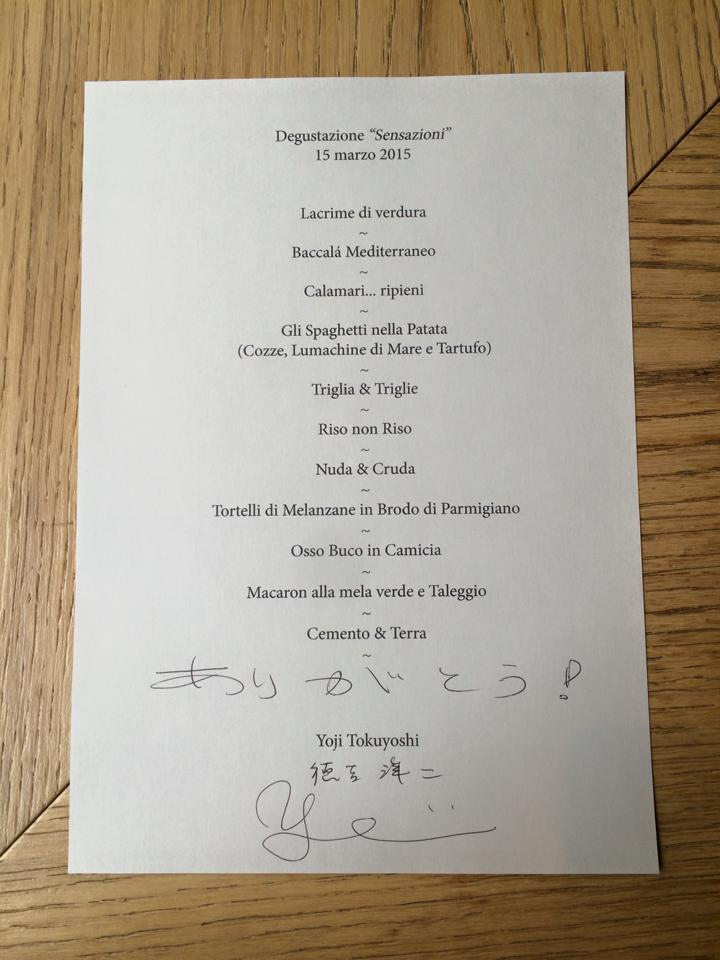 Degustazione “Sensazioni”
15 marzo 2015
Lacrime di verdura
~
Baccalá Mediterraneo
~
Calamari... ripieni
~
Gli Spaghetti nella Patata
(Cozze, Lumachine di Mare e Tartufo)
~
Triglia & Triglie
~
Riso non Riso
~
Nuda & Cruda
~
Tortelli di Melanzane in Brodo di Parmigiano
~
Osso Buco in Camicia
~
Macaron alla mela verde e Taleggio
~
Cemento & Terra
~
ありがとう!
Yoji Tokuyoshi
徳吉 洋二